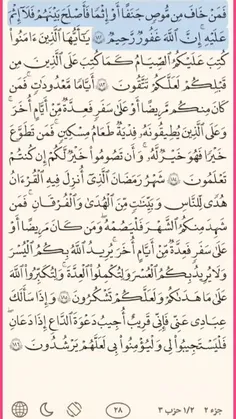 فَمَنْ خَافَ مِن مُّوصٍ جَنَفًا أَوْ إِثْمًا فَأَصْلَحَ بَيْنَهُمْ فَلَآ إِثْمَ
عَلَيْهِ إِنَّ ٱللَّهَ غَفُورٌ رَّحِيمٌ ١٨٢ يَٰٓأَيُّهَا ٱلَّذِينَ ءَامَنُوا۟
كُتِبَ عَلَيْكُمُ ٱلصِّيَامُ كَمَا كُتِبَ عَلَى ٱلَّذِينَ مِن
قَبْلِكُمْ لَعَلَّكُمْ تَتَّقُونَ ١٨٣ أَيَّامًا مَّعْدُودَٰتٍ فَمَن
كَانَ مِنكُم مَّرِيضًا أَوْ عَلَىٰ سَفَرٍ فَعِدَّةٌ مِّنْ أَيَّامٍ أُخَرَ
وَعَلَى ٱلَّذِينَ يُطِيقُونَهُۥ فِدْيَةٌ طَعَامُ مِسْكِينٍ فَمَن تَطَوَّعَ
خَيْرًا فَهُوَ خَيْرٌ لَّهُۥ وَأَن تَصُومُوا۟ خَيْرٌ لَّكُمْ إِن كُنتُمْ
تَعْلَمُونَ ١٨٤ شَهْرُ رَمَضَانَ ٱلَّذِىٓ أُنزِلَ فِيهِ ٱلْقُرْءَانُ
هُدًى لِّلنَّاسِ وَبَيِّنَٰتٍ مِّنَ ٱلْهُدَىٰ وَٱلْفُرْقَانِ فَمَن
شَهِدَ مِنكُمُ ٱلشَّهْرَ فَلْيَصُمْهُ وَمَن كَانَ مَرِيضًا أَوْ
عَلَىٰ سَفَرٍ فَعِدَّةٌ مِّنْ أَيَّامٍ أُخَرَ يُرِيدُ ٱللَّهُ بِكُمُ ٱلْيُسْرَ
وَلَا يُرِيدُ بِكُمُ ٱلْعُسْرَ وَلِتُكْمِلُوا۟ ٱلْعِدَّةَ وَلِتُكَبِّرُوا۟ ٱللَّهَ
عَلَىٰ مَا هَدَىٰكُمْ وَلَعَلَّكُمْ تَشْكُرُونَ ١٨٥ وَإِذَا سَأَلَكَ
عِبَادِى عَنِّى فَإِنِّى قَرِيبٌ أُجِيبُ دَعْوَةَ ٱلدَّاعِ إِذَا دَعَانِ
فَلْيَسْتَجِيبُوا۟ لِى وَلْيُؤْمِنُوا۟ بِى لَعَلَّهُمْ يَرْشُدُونَ ١٨٦
جزء ٢ ١/٢ حزب ٣ ٢٨